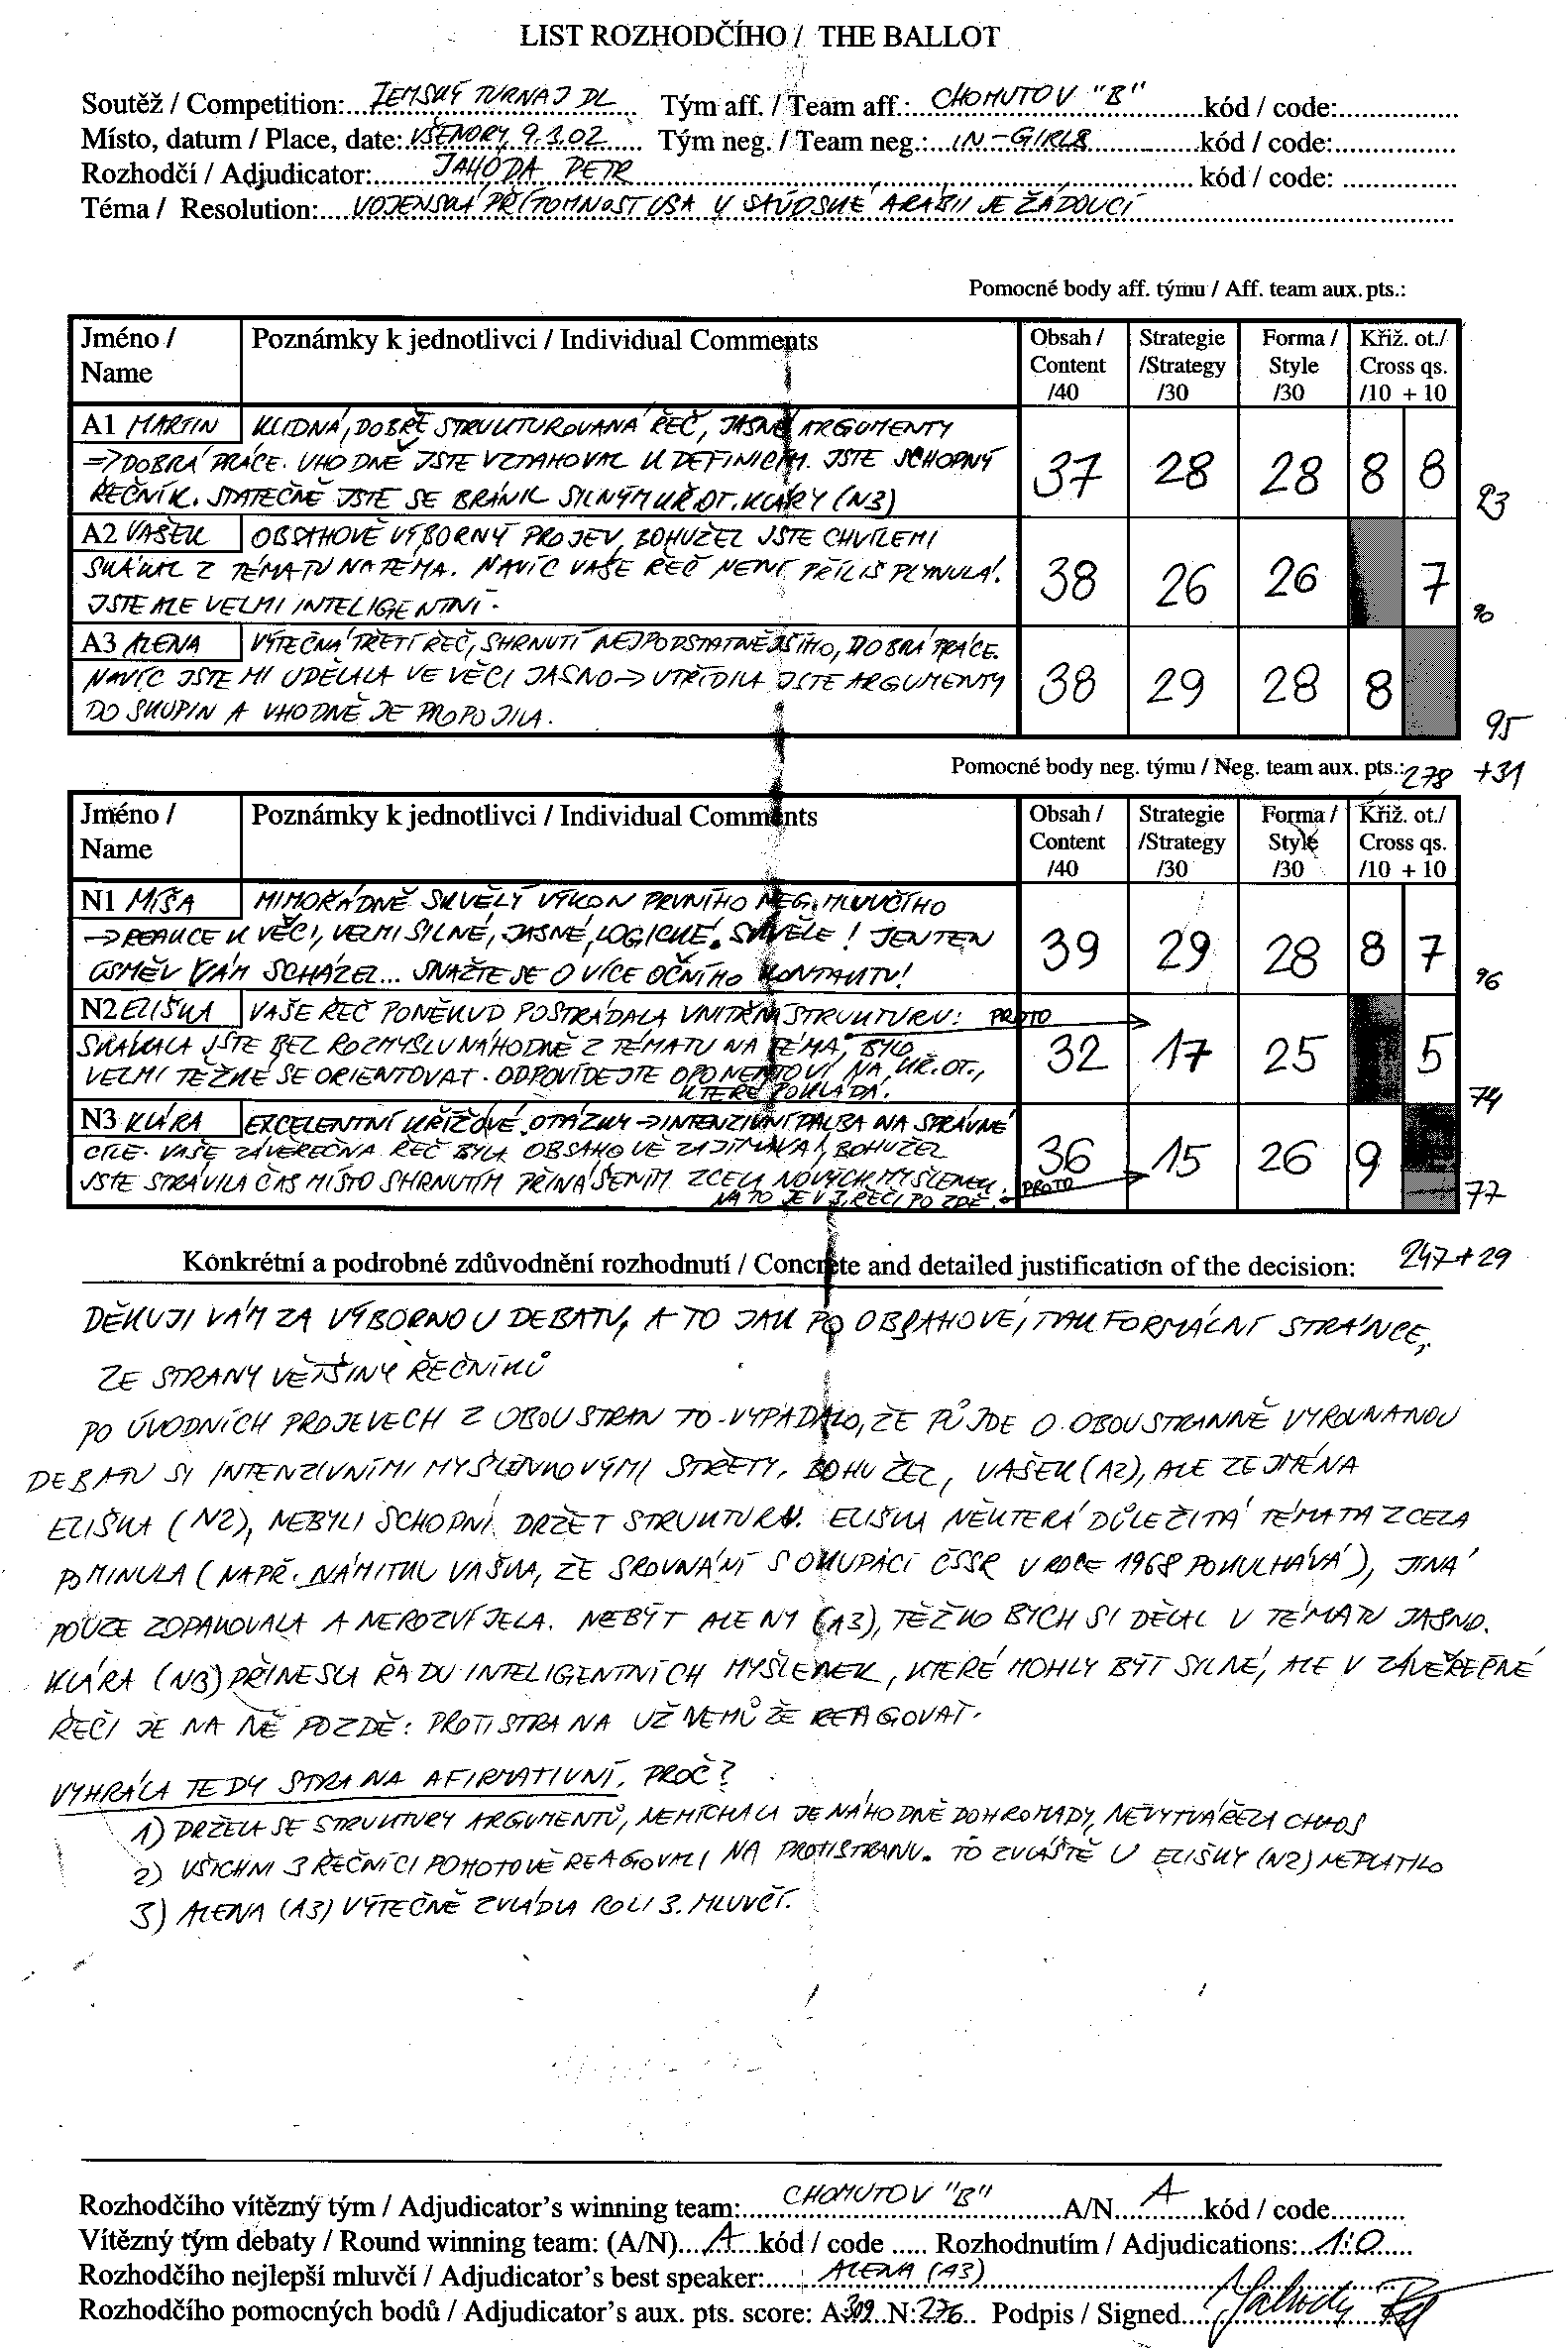 LIST ROZHODČÍHO / THE BALLOT
Soutěž / Competition: ZEMSKÝ TURNAJ DL Tým aff. / Team aff.: CHOMUTOV "B" kód / code:
Místo, datum / Place, date: VŠENORY, 9.3.02 Tým neg. / Team neg.: IN-GIRLS kód / code:
Rozhodčí / Adjudicator: JAHODA PETR kód / code:
Téma / Resolution: VOJENSKÁ PŘÍTOMNOST USA V SAÚDSKÉ ARÁBII JE ŽÁDOUCÍ
Pomocné body aff. týmu / Aff. team aux. pts.:
Jméno / Name Poznámky k jednotlivci / Individual Comments Obsah / Content /40 Strategie /Strategy /30 Forma / Style /30 Křiž. ot./ Cross qs. /10 + 10
A1 MARTIN KLIDNÁ, DOBŘE STRUKTUROVANÁ ŘEČ, JASNÉ ARGUMENTY
=> DOBRÁ PRÁCE. VHODNĚ JSTE VZTAHOVAL K DEFINICÍM. JSTE SCHOPNÝ 37 28 28 8 8
ŘEČNÍK. STATEČNĚ JSTE SE BRÁNIL SILNÝM KŘ. OT. KLÁRY (N3) 93
A2 VAŠEK OBSAHOVĚ VÝBORNÝ PROJEV, BOHUŽEL JSTE CHVÍLEMI
SKÁKAL Z TÉMATU NA TÉMA. NAVÍC VAŠE ŘEČ NENÍ PŘÍLIŠ PLYNULÁ. 38 26 26 7
JSTE ALE VELMI INTELIGENTNÍ. 90
A3 ALENA VÝTEČNÁ TŘETÍ ŘEČ, SHRNUTÍ NEJPODSTATNĚJŠÍHO, DOBRÁ PRÁCE.
NAVÍC JSTE MI UDĚLALA VE VĚCI JASNO -> UTŘÍDILA JSTE ARGUMENTY 38 29 28 8
DO SKUPIN A VHODNĚ JE PROPOJILA. 95
Pomocné body neg. týmu / Neg. team aux. pts.: 278 +31
Jméno / Name Poznámky k jednotlivci / Individual Comments Obsah / Content /40 Strategie /Strategy /30 Forma / Style /30 Křiž. ot./ Cross qs. /10 + 10
N1 MÍŠA MIMOŘÁDNĚ SKVĚLÝ VÝKON PRVNÍHO NEG. MLUVČÍHO
-> REAKCE K VĚCI, VELMI SILNÉ, JASNÉ, LOGICKÉ. SKVĚLE! JEN TEN 39 29 28 8 7
ÚSMĚV VÁM SCHÁZEL... SNAŽTE SE O VÍCE OČNÍHO KONTAKTU! 96
N2 ELIŠKA VAŠE ŘEČ PONĚKUD POSTRÁDALA VNITŘNÍ STRUKTURU: PROTO
SKÁKALA JSTE BEZ ROZMYSLU NÁHODNĚ Z TÉMATU NA TÉMA, BYLO 32 17 25 5
VELMI TĚŽKÉ SE ORIENTOVAT. ODPOVÍDEJTE OPONENTOVI NA KŘ. OT.,
KTERÉ POKLÁDÁ. 74
N3 KLÁRA EXCELENTNÍ KŘÍŽOVÉ OTÁZKY -> INTENZIVNÍ PALBA NA SPRÁVNÉ
CÍLE. VAŠE ZÁVĚREČNÁ ŘEČ BYLA OBSAHOVĚ ZAJÍMAVÁ, BOHUŽEL 36 15 26 9
JSTE STRÁVILA ČAS MÍSTO SHRNUTÍM PŘINÁŠENÍM ZCELA NOVÝCH MYŠLENEK. PROTO
NA TO JE V 3. ŘEČI POZDĚ. 77
Konkrétní a podrobné zdůvodnění rozhodnutí / Concrete and detailed justification of the decision: 247 + 29
DĚKUJI VÁM ZA VÝBORNOU DEBATU, A TO JAK PO OBSAHOVÉ, TAK FORMÁLNÍ STRÁNCE,
ZE STRANY VĚTŠINY ŘEČNÍKŮ
PO ÚVODNÍCH PROJEVECH Z OBOU STRAN TO VYPADALO, ŽE PŮJDE O OBOUSTRANNĚ VYROVNANOU
DEBATU S INTENZIVNÍMI MYŠLENKOVÝMI STŘETY. BOHUŽEL, VAŠEK (A2), ALE ZEJMÉNA
ELIŠKA (N2), NEBYLI SCHOPNI DRŽET STRUKTURU. ELIŠKA NĚKTERÁ DŮLEŽITÁ TÉMATA ZCELA
POMINULA (NAPŘ. NÁMITKU VAŠKA, ŽE SROVNÁNÍ S OKUPACÍ ČSSR V ROCE 1968 POKULHÁVÁ), JINÁ
POUZE ZOPAKOVALA A NEROZVÍJELA. NEBÝT ALENY (A3), TĚŽKO BYCH SI DĚLAL V TÉMATU JASNO.
KLÁRA (N3) PŘINESLA ŘADU INTELIGENTNÍCH MYŠLENEK, KTERÉ MOHLY BÝT SILNÉ, ALE V ZÁVĚREČNÉ
ŘEČI JE NA NĚ POZDĚ: PROTISTRANA UŽ NEMŮŽE REAGOVAT.
VYHRÁLA TEDY STRANA AFIRMATIVNÍ. PROČ?
1) DRŽELA SE STRUKTURY ARGUMENTŮ, NEMÍCHALA JE NÁHODNĚ DOHROMADY, NEVYTVÁŘELA CHAOS
2) VŠICHNI 3 ŘEČNÍCI POHOTOVĚ REAGOVALI NA PROTISTRANU. TO ZVLÁŠTĚ U ELIŠKY (N2) NEPLATILO
3) ALENA (A3) VÝTEČNĚ ZVLÁDLA ROLI 3. MLUVČÍ.
Rozhodčího vítězný tým / Adjudicator's winning team: CHOMUTOV "B" A/N A kód / code
Vítězný tým debaty / Round winning team: (A/N) A kód / code Rozhodnutím / Adjudications: 1:0
Rozhodčího nejlepší mluvčí / Adjudicator's best speaker: ALENA (A3)
Rozhodčího pomocných bodů / Adjudicator's aux. pts. score: A: 309 N: 276 Podpis / Signed Jahoda Petr